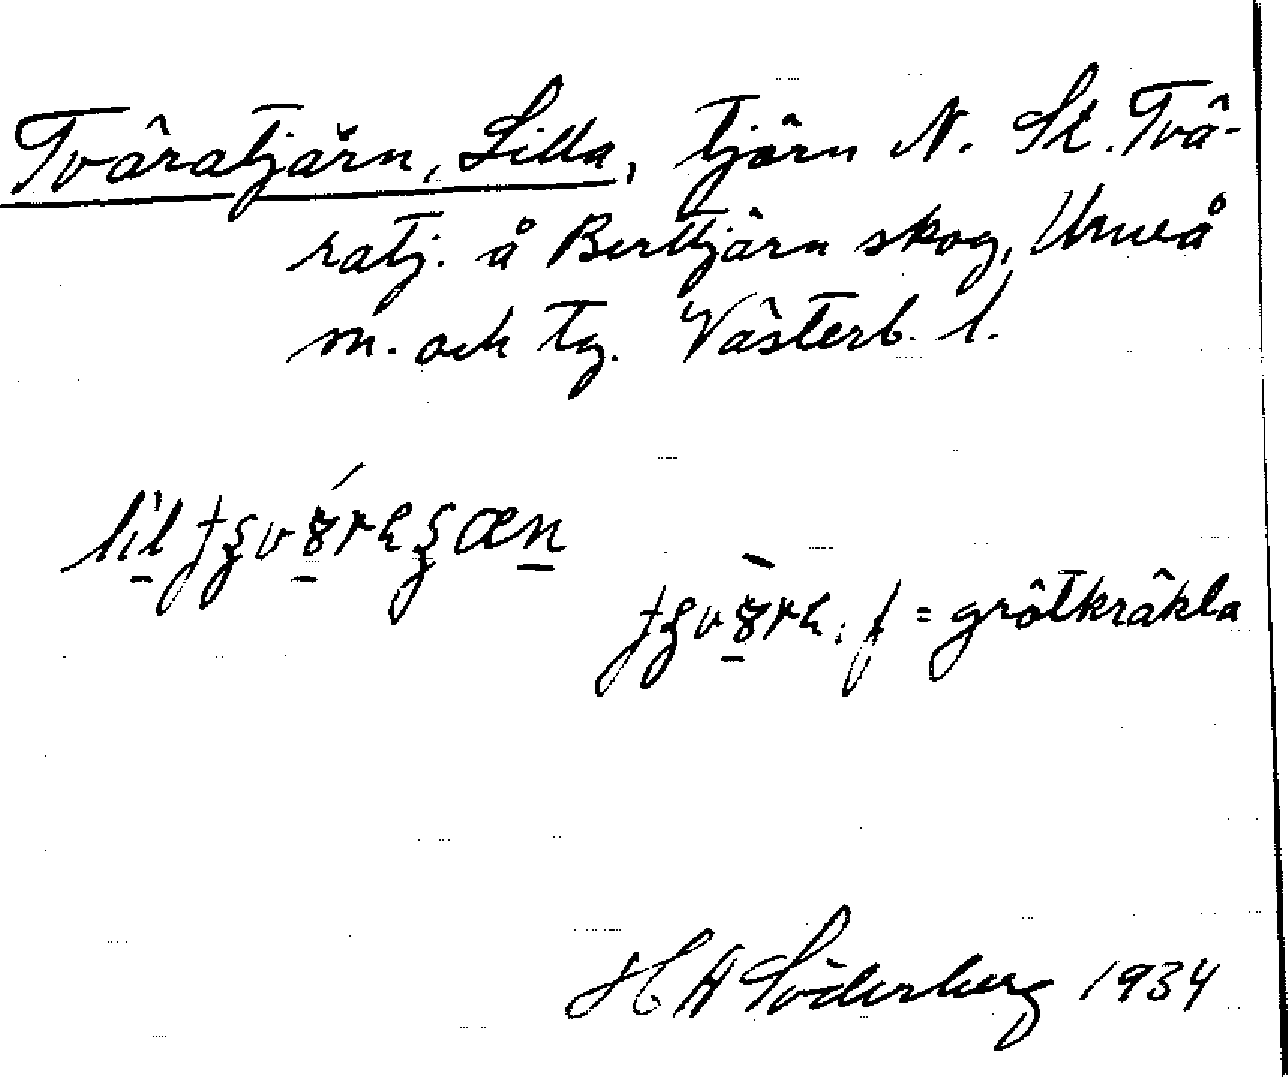 Tväratjärn, Lilla, tjärn N. St. Tvä-
ratj. å Berttjärn skog, Umeå
m. och tg. Västerb. l.
lil
f = grötkräkla
H A Söderberg 1934